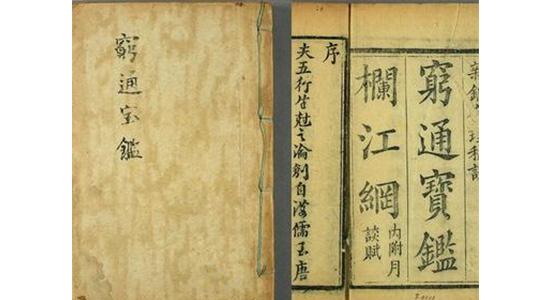 窮通宝鑑
窮通寶鑑
欄江網
内附月
談賦
序
夫五行生尅之論創自漢儒至唐